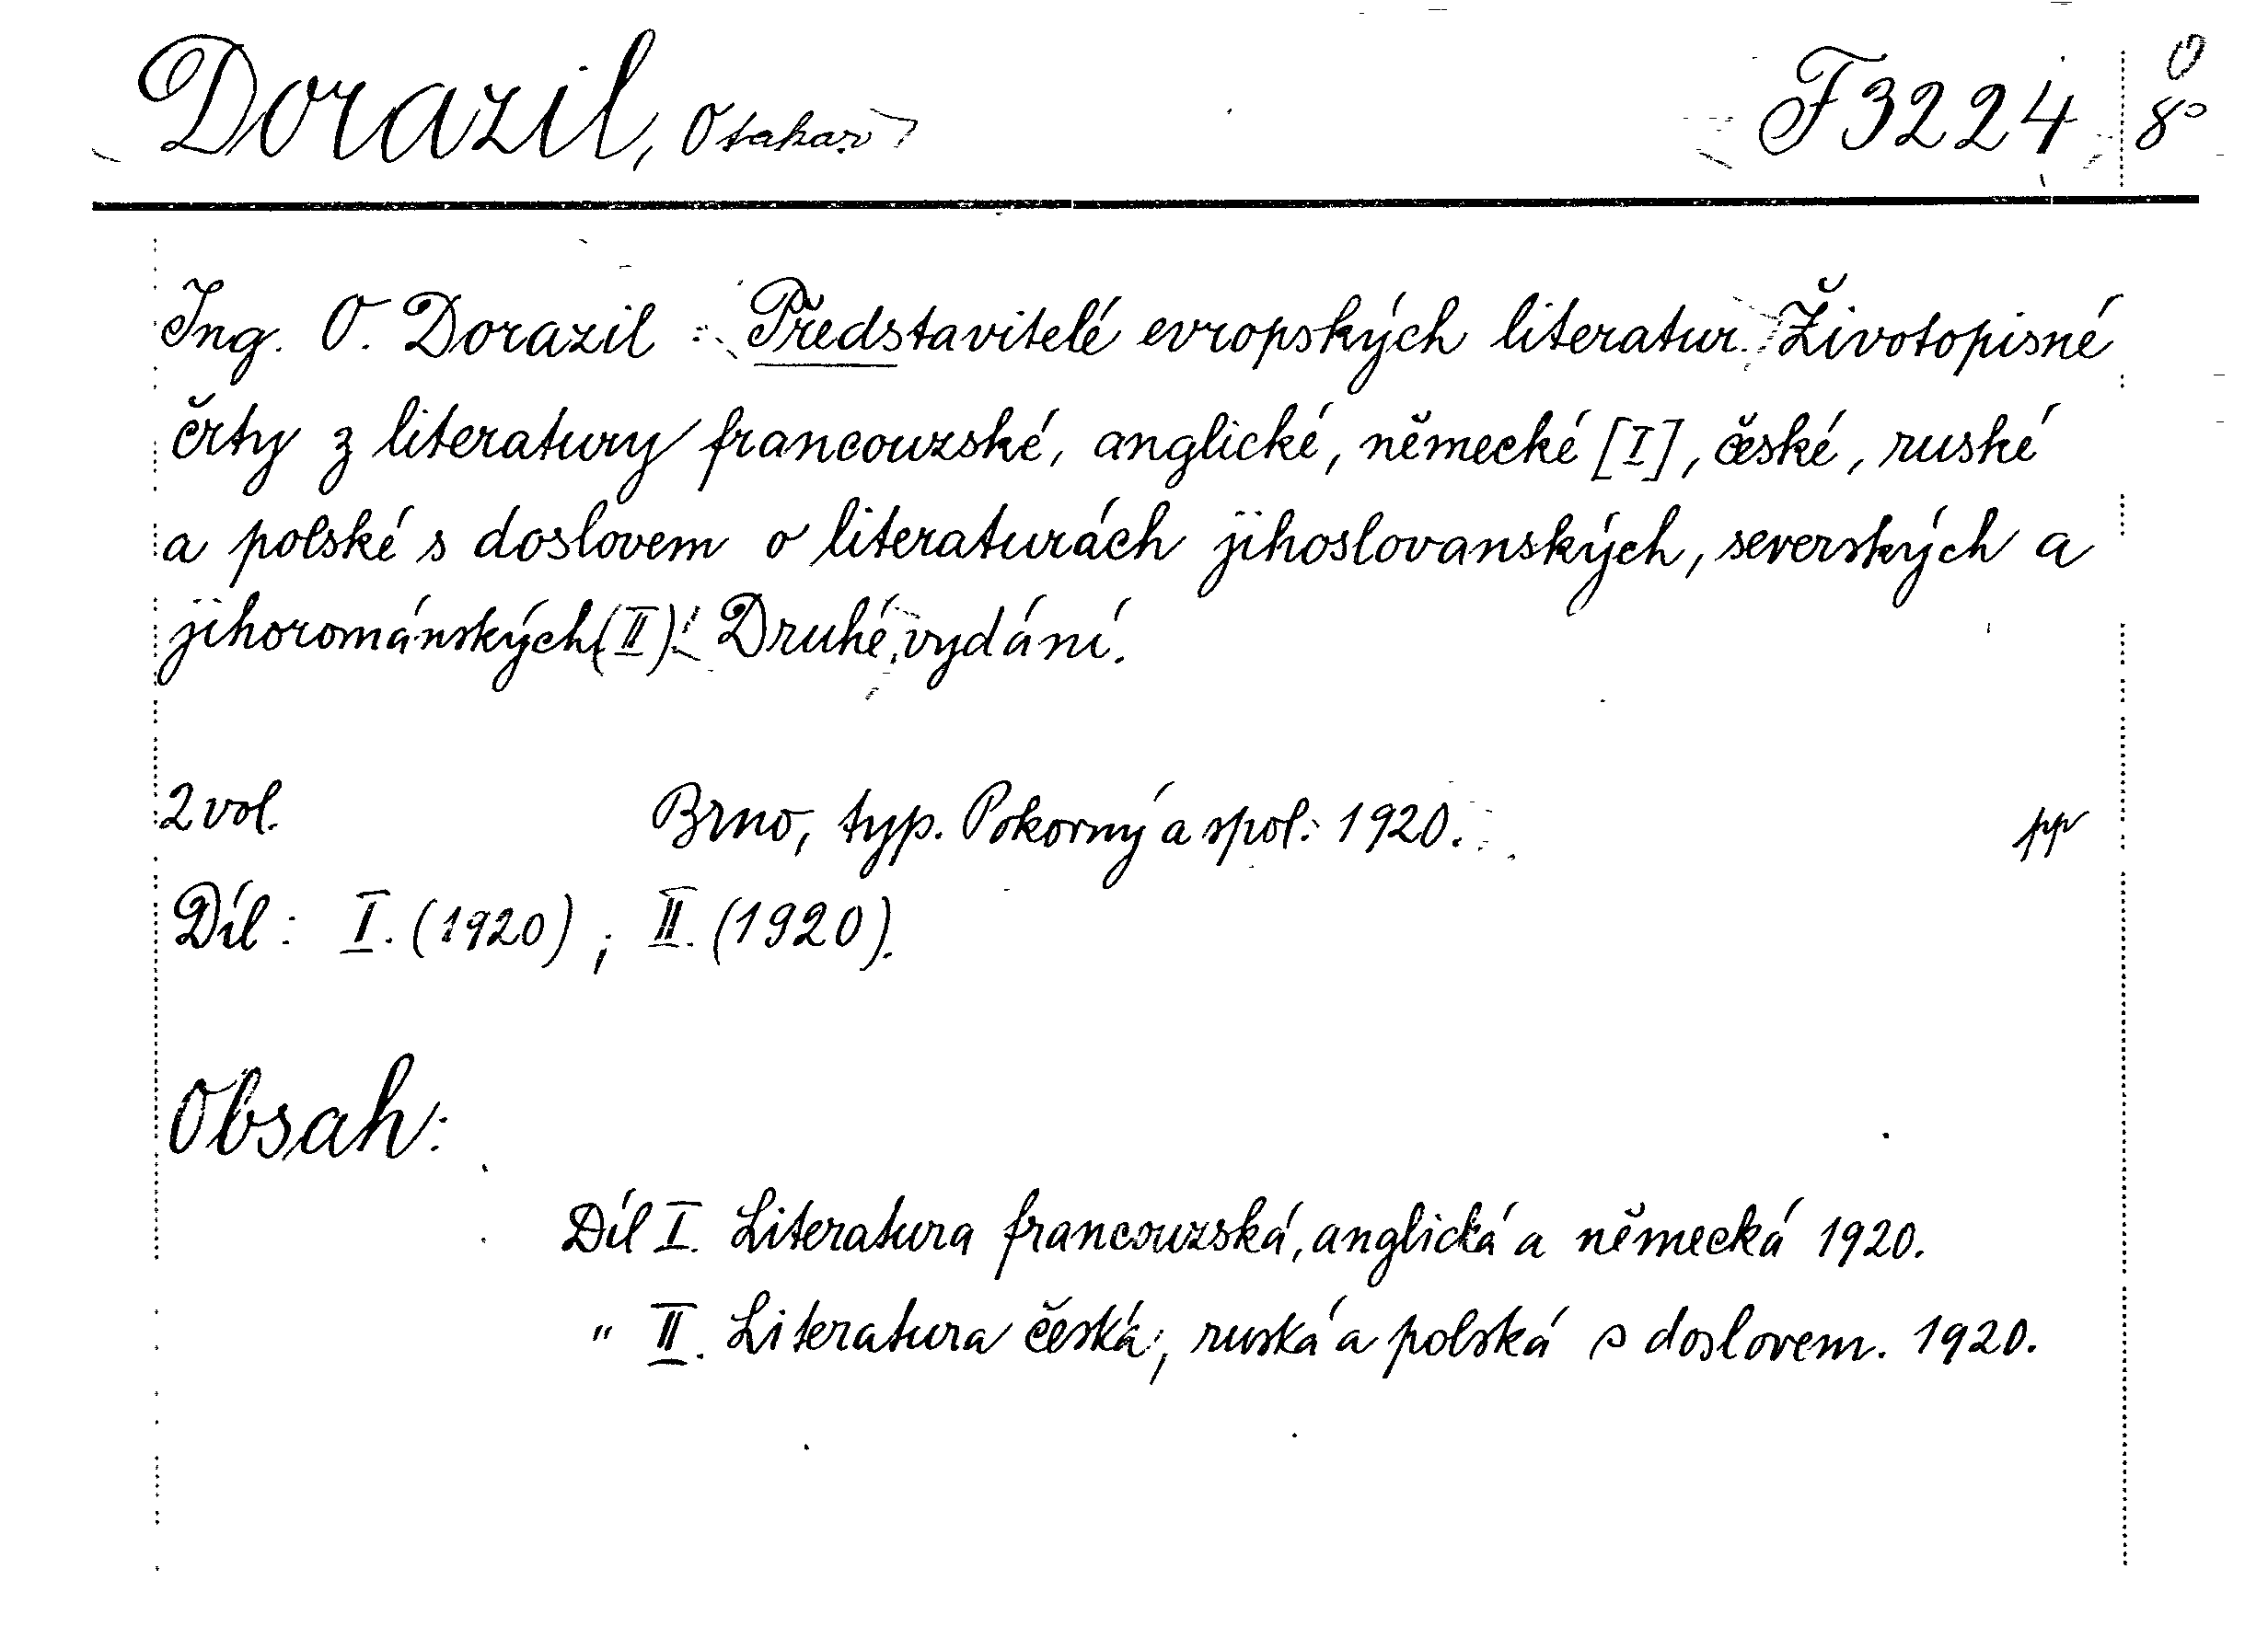 Dorazil, Otakar F 3224 8°
Ing. O. Dorazil : Představitelé evropských literatur. Životopisné
črty z literatury francouzské, anglické, německé [I], české, ruské
a polské s doslovem o literaturách jihoslovanských, severských a
jihorománských (II). Druhé vydání.
2 vol. Brno, typ. Pokorný a spol. 1920. pp
Díl : I. (1920) ; II. (1920).
Obsah:
Díl I. Literatura francouzská, anglická a německá 1920.
" II. Literatura česká, ruská a polská s doslovem. 1920.